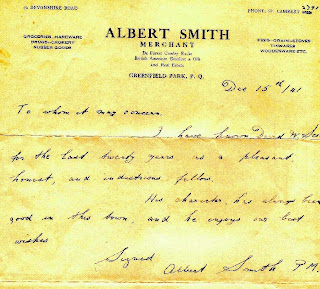 DEVONSHIRE ROAD
PHONE: ST. LAMBERT
ALBERT SMITH
MERCHANT
GROCERIES, HARDWARE
DRUGS-CROCKERY
RUBBER GOODS
FEED-GRAIN-STOVES
TINWARES
WOODENWARE ETC.
British American Gasoline & Oils
and Real Estate
GREENFIELD PARK, P. Q.
Dec 15th /41
To whom it may concern.
I have known David W.
for the last twenty years as a pleasant,
honest, and industrious fellow.
His character, has always been
good in this town, and he enjoys our best
wishes
Signed
Albert Smith P.M.